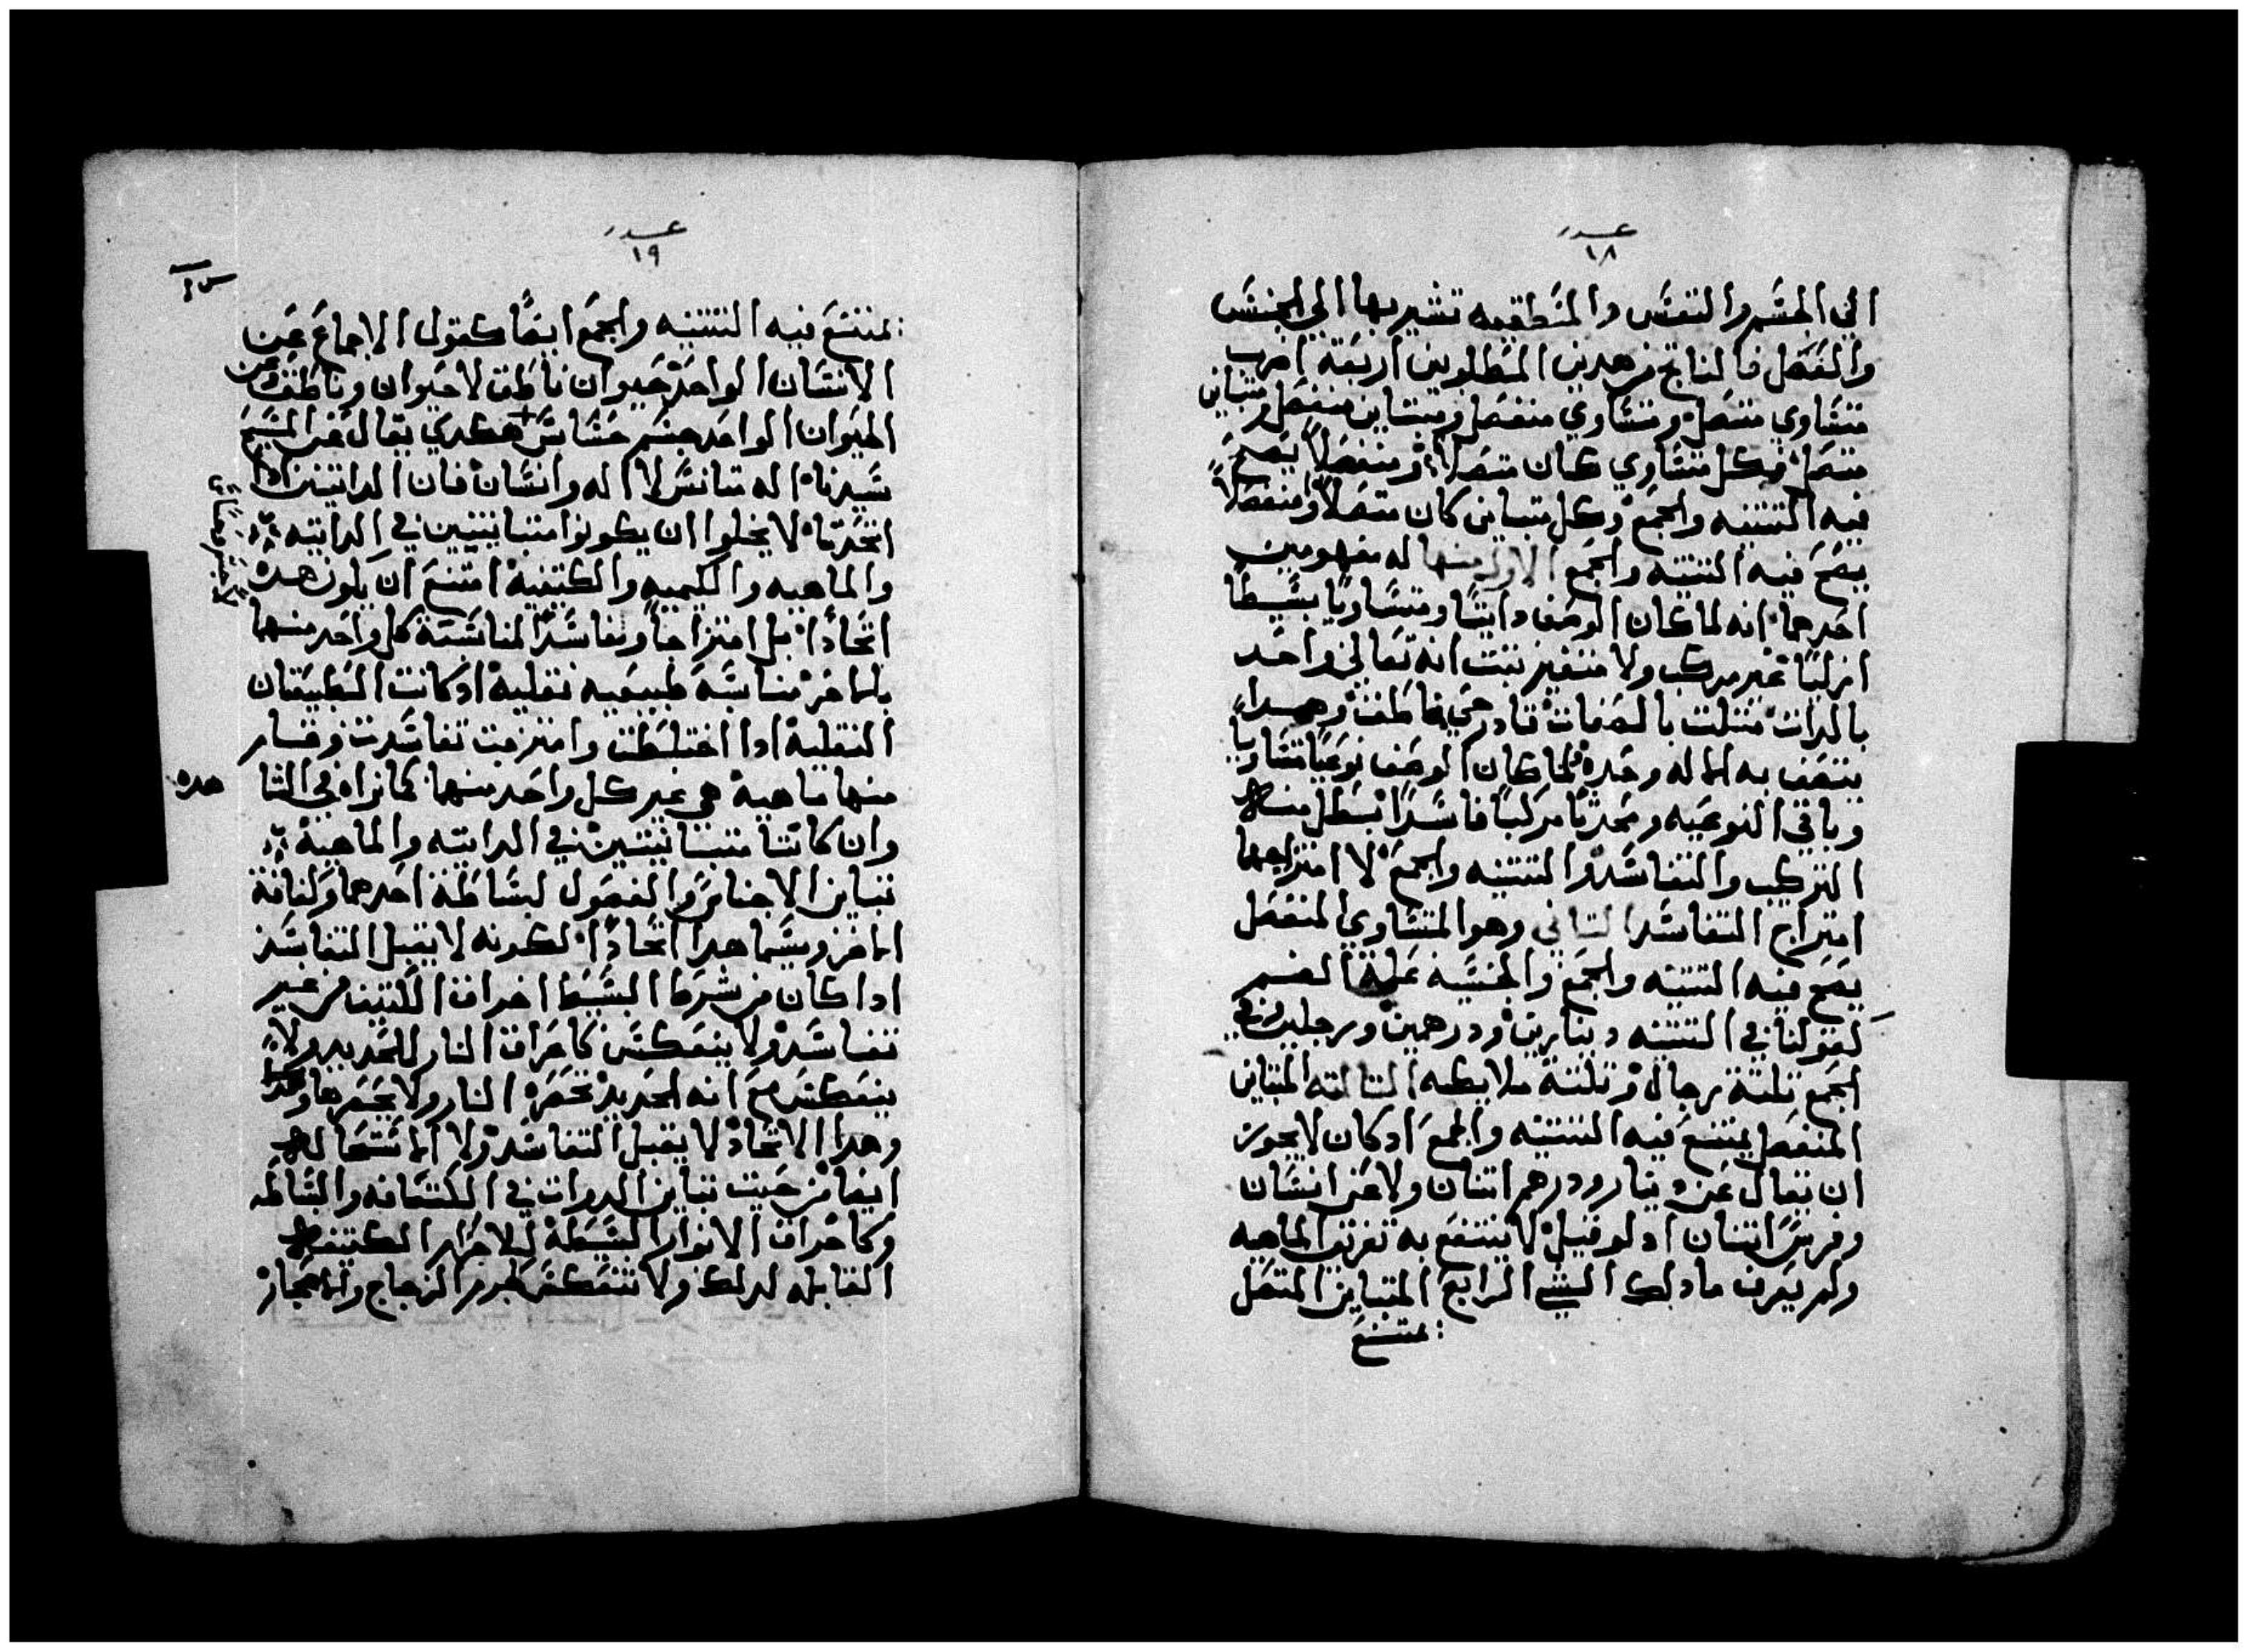 عدد
١٨
الي الجسم والنفس والمنطقيه تشير بها الي الجنس
والفصل فالناتج من هدين المطلوبين اربعة اضرب
متساوي متصل ومتساوي منفصل ومتباين منفصل ومتباين
متصل فكل متساوي كان متصلاً ومنفصلاً يصح
فيه التتنيه والجمع وكل متباين كان متصلاً او منفصلاً
فيه التتنيه والجمع الاول منها له مفهومين
احدهما انه لما كان الوصف داتيًا ومتساويًا بسيطًا
ازليًا غير مركب ولا متغير تبت انه تعالي واحد
بالدات متلت بالصفات قادر حي ناطق وهدا
يتصف به الاله وحده ولما كان الوصف نوعيًا متساويا
وباقي النوعيه ومحدتًا مركبًا فاسدًا بطل منه
التركيب والتفاسد والتتنيه والجمع لا امتزاجهما
امتزاج التفاسد التاني وهو المتساوي المنفصل
يصح فيه التتنيه والجمع والجنسيه علة الضم
كقولنا في التتنيه دينارين ودرهمين ورجلين وفي
الجمع تلتة رجال وتلتة ملايكه التالته المتباين
المنفصل يمتنع فيه التتنيه والجمع اد كان لا يجوز
ان يقال عن دينار ودرهم اتنان ولا عن انسان
وفرس اتنان اد لو قيل لا ينتفع به تعريف الماهيه
ولم يعرف ما دلك الشي الرابع المتباين المتصل
يمتنع
عدد
١٩
يمتنع فيه التتنيه والجمع ايضًا كقول الاجماع عن
الانسان الواحد حيوان ناطق لا حيوان وناطق وعن
الحيوان الواحد جسم حساس هكدي يقال عن المسيح
سيدنا اله تانس لا اله وانسان فان الداتين ادا
اتحدتا لا يخلوا ان يكونوا متباينتين في الداتيه
والماهيه والكميه والكيفيه امتنع ان يكون هده
اتحادًا بل امتزاجًا وتفاسدًا لمناسبة كل واحد منهما
بالاخر مناسبة طبيعيه تقليه ادكانت الطبيعتان
التقليه ادا اختلطت وامتزجت تفاسدت وصار
منها ماهية هي غير كل واحد منهما كما نراه في النشا
هده
وان كانتا متباينتين في الداتيه والماهية
تباين الاجناس والفصول لبساطة احدهما وكتافة
الاخر ويسما هدا اتحادًا لكونه لا يقبل التفاسد
ادا كان من شرط البسيط اختراق الكتيف من غير
تفاسد ولا ينعكس كاختراق النار للحديد ولا
ينعكس مع انه الحديد تحصره النار ولا يحصرها
وهدا الاتحاد لا يقبل التفاسد ولا الاستحاله
ايضا من حيت تباين الدوات في الكتافه والبساطه
وكاختراق الانوار البسيطة للاجرام الكتيفه
القابله لدلك ولا تنعكس كجرم الزجاج والاحجار